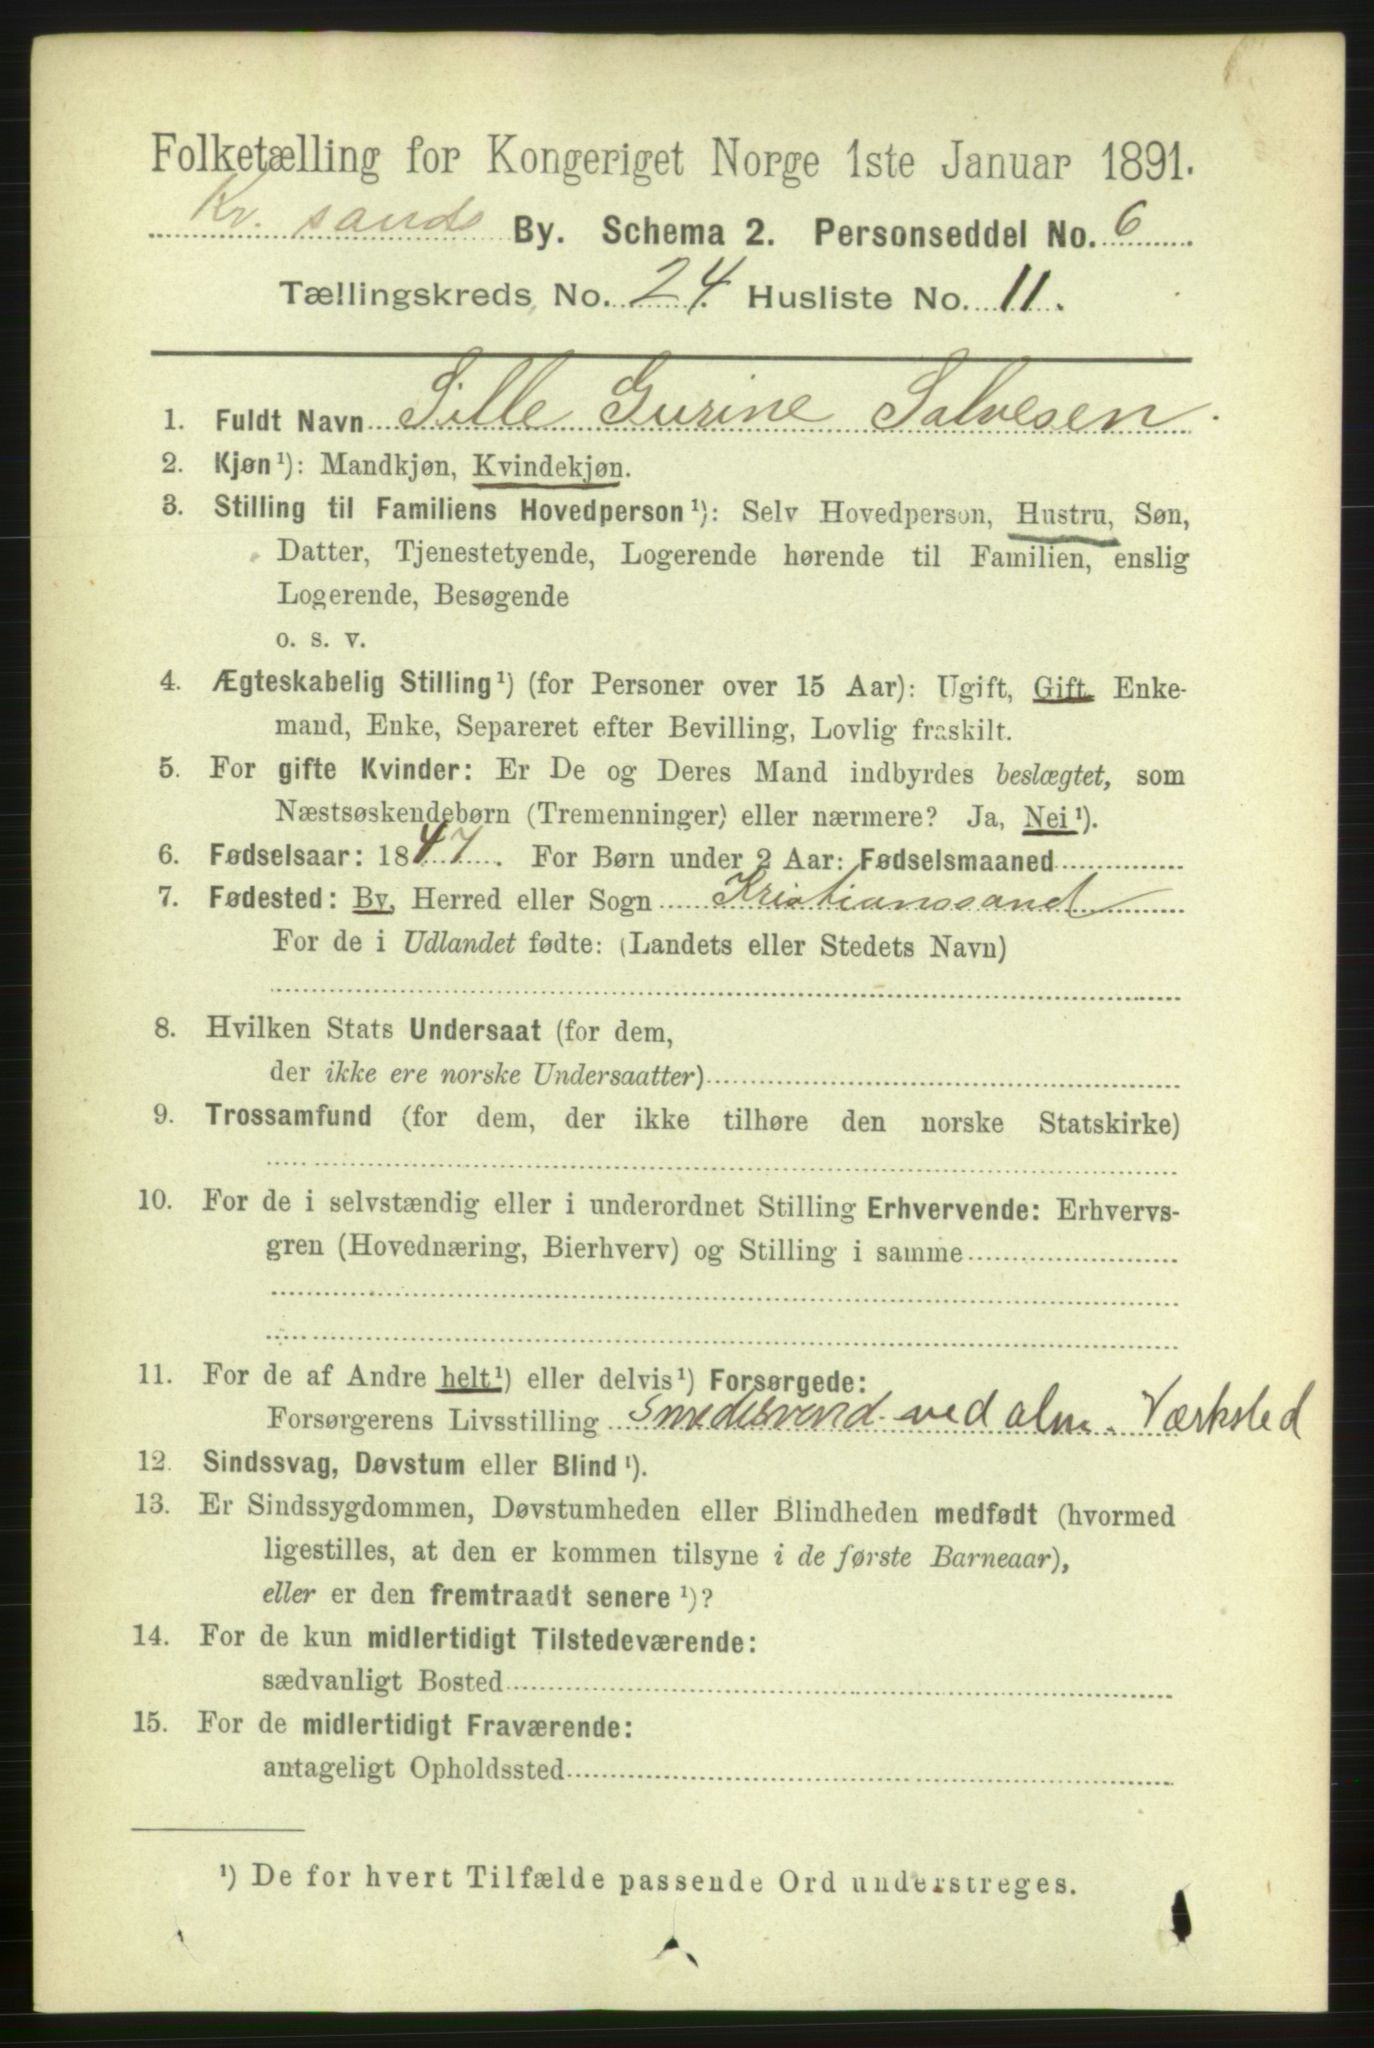 Folketælling for Kongeriget Norge 1ste Januar 1891.
Kr. sands By. Schema 2. Personseddel No. 6
Tællingskreds No. 24. Husliste No. 11.
1. Fuldt Navn Sille Gurine Salvesen.
2. Kjøn¹): Mandkjøn, Kvindekjøn.
3. Stilling til Familiens Hovedperson¹): Selv Hovedperson, Hustru, Søn,
Datter, Tjenestetyende, Logerende hørende til Familien, enslig
Logerende, Besøgende
o. s. v.
4. Ægteskabelig Stilling¹) (for Personer over 15 Aar): Ugift, Gift, Enke-
mand, Enke, Separeret efter Bevilling, Lovlig fraskilt.
5. For gifte Kvinder: Er De og Deres Mand indbyrdes beslægtet, som
Næstsøskendebørn (Tremenninger) eller nærmere? Ja, Nei¹).
6. Fødselsaar: 1847. For Børn under 2 Aar: Fødselsmaaned
7. Fødested: By, Herred eller Sogn Kristianssand
For de i Udlandet fødte: (Landets eller Stedets Navn)
8. Hvilken Stats Undersaat (for dem,
der ikke ere norske Undersaatter)
9. Trossamfund (for dem, der ikke tilhøre den norske Statskirke)
10. For de i selvstændig eller i underordnet Stilling Erhvervende: Erhvervs-
gren (Hovednæring, Bierhverv) og Stilling i samme
11. For de af Andre helt¹) eller delvis¹) Forsørgede:
Forsørgerens Livsstilling Smedesvend ved alm. Værksted
12. Sindssvag, Døvstum eller Blind¹).
13. Er Sindssygdommen, Døvstumheden eller Blindheden medfødt (hvormed
ligestilles, at den er kommen tilsyne i de første Barneaar),
eller er den fremtraadt senere¹)?
14. For de kun midlertidigt Tilstedeværende:
sædvanligt Bosted
15. For de midlertidigt Fraværende:
antageligt Opholdssted
¹) De for hvert Tilfælde passende Ord understreges.